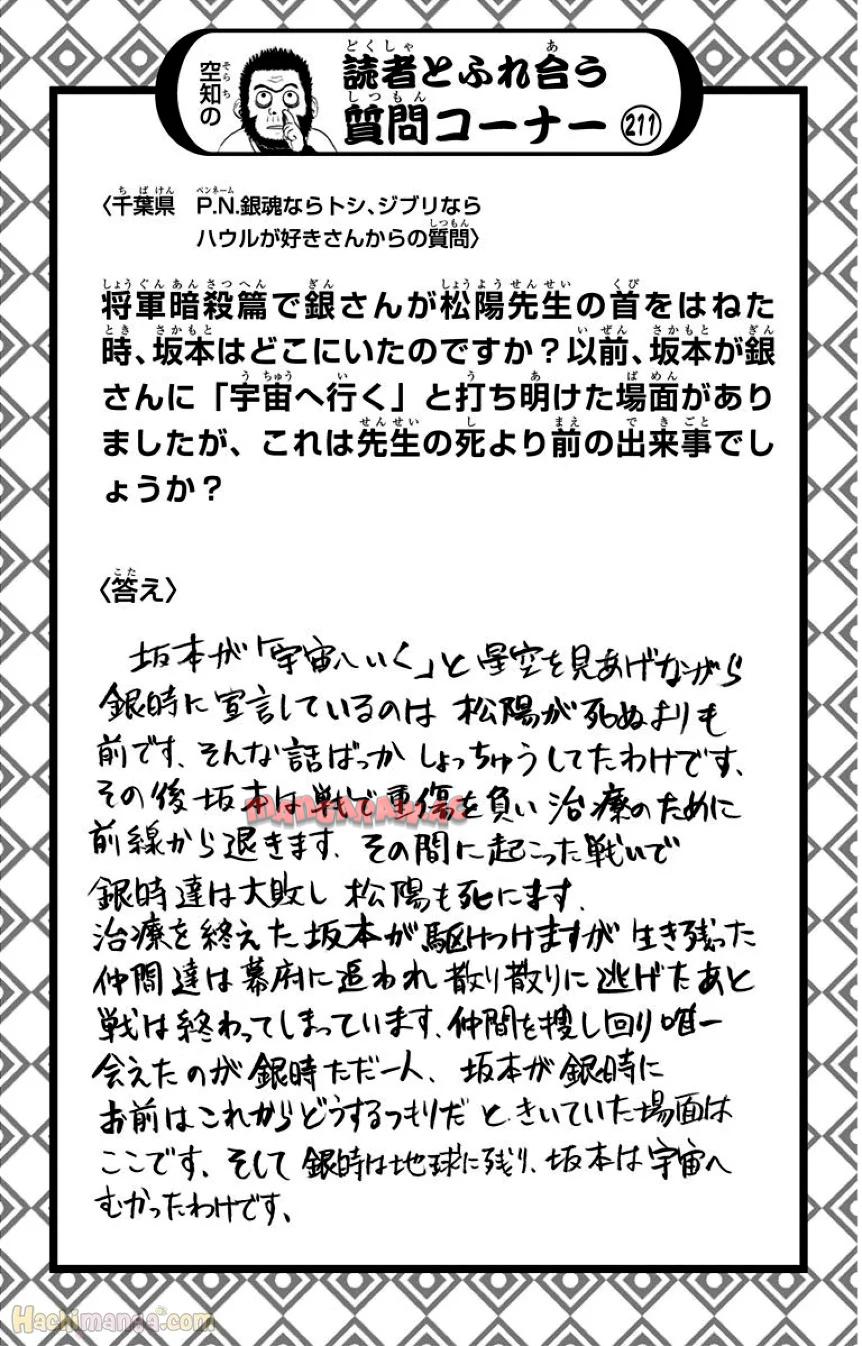 空知の
読者とふれ合う
質問コーナー 211
〈千葉県 P.N.銀魂ならトシ、ジブリなら
ハウルが好きさんからの質問〉
将軍暗殺篇で銀さんが松陽先生の首をはねた
時、坂本はどこにいたのですか?以前、坂本が銀
さんに「宇宙へ行く」と打ち明けた場面があり
ましたが、これは先生の死より前の出来事でし
ょうか?
〈答え〉
坂本が「宇宙へいく」と星空を見あげながら
銀時に宣言しているのは 松陽が死ぬよりも
前です、そんな話ばっか しょっちゅうしてたわけです、
その後 坂本は戦で重傷を負い 治療のために
前線から退きます、その間に起こった戦いで
銀時達は大敗し 松陽も死にます、
治療を終えた坂本が駆けつけますが 生き残った
仲間達は幕府に追われ 散り散りに逃げたあと
戦は終わってしまっています、仲間を捜し回り唯一
会えたのが銀時ただ一人、坂本が銀時に
お前はこれからどうするつもりだ と きいていた場面は
ここです、そして 銀時は地球に残り、坂本は宇宙へ
むかったわけです、
MANGARAW.AC
Hachimanga.com